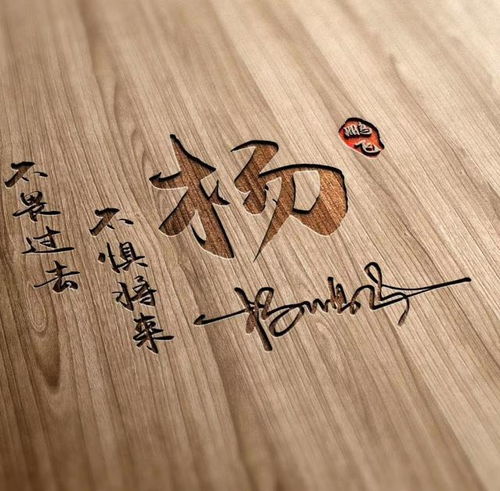 不畏过去
不惧将来
杨
鹏飞